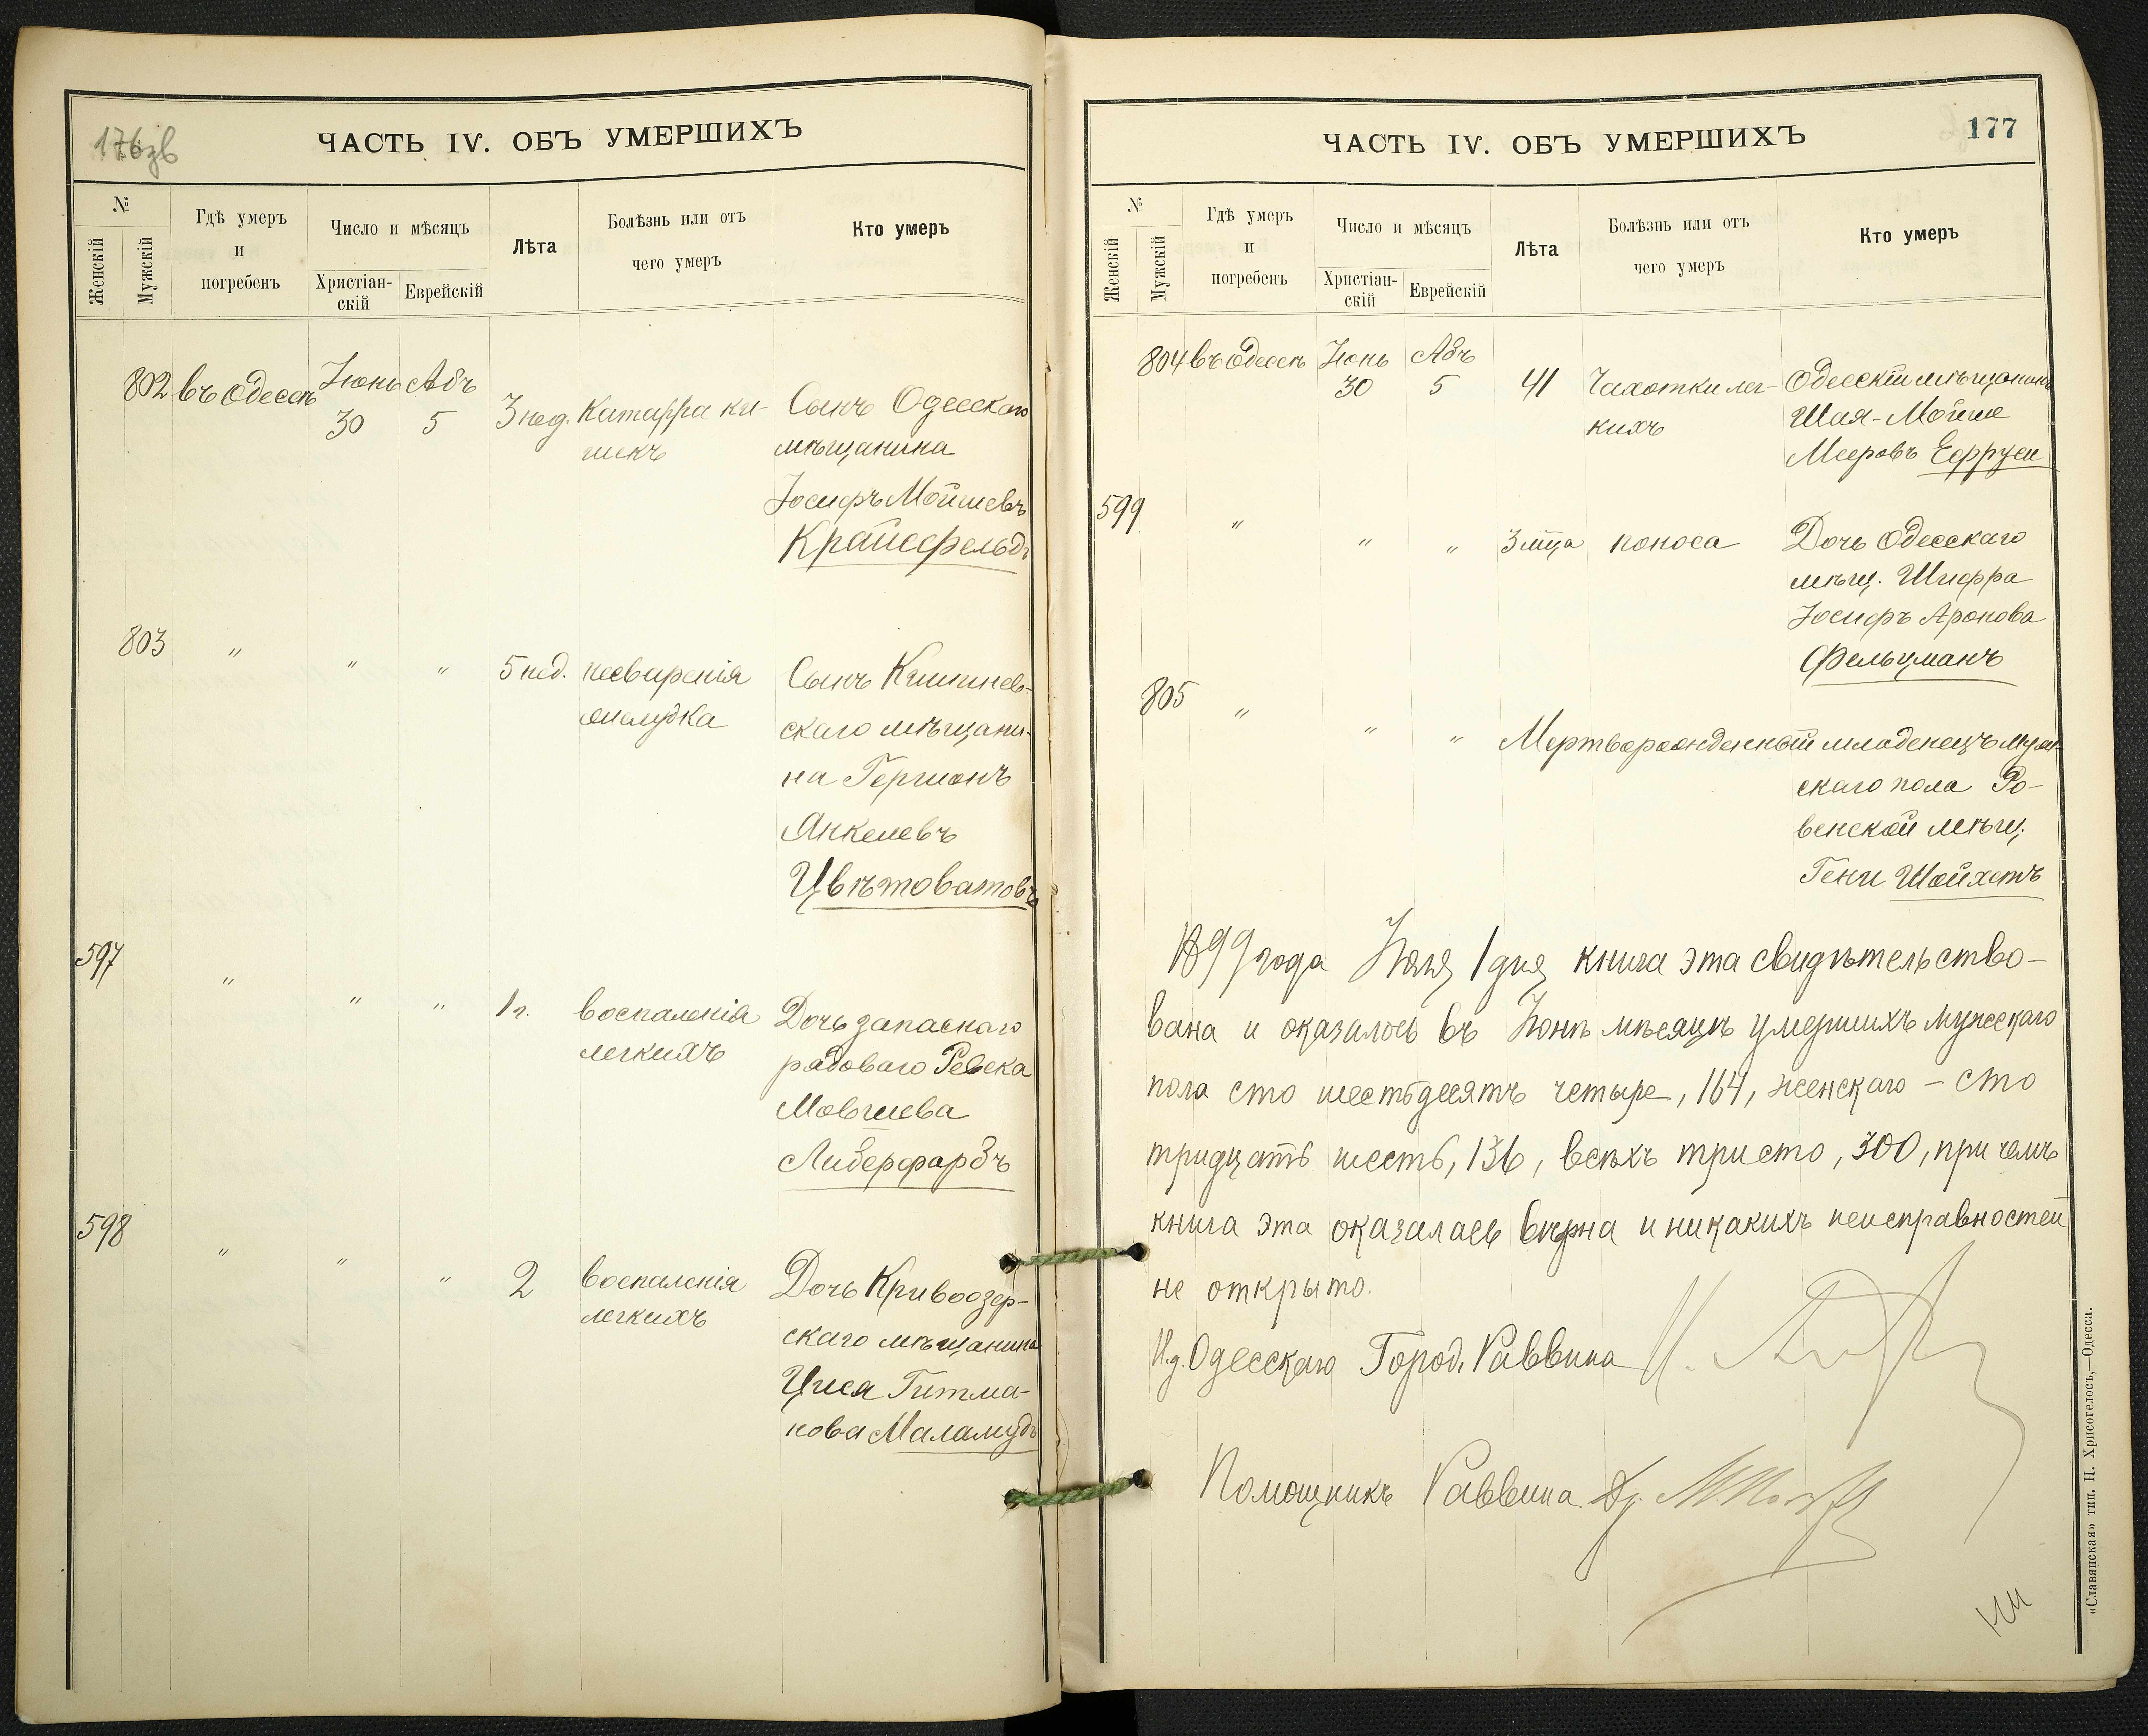 176зв
ЧАСТЬ IV. ОБЪ УМЕРШИХЪ
№
Женскій
Мужскій
Гдѣ умеръ
и
погребенъ
Число и мѣсяцъ
Христіан-
скій
Еврейскій
Лѣта
Болѣзнь или отъ
чего умеръ
Кто умеръ
802 въ Одессѣ Іюнь 30 Абъ 5 3 нед. Катарра ки- Сынъ Одесскаго
шекъ мѣщанина
Іосифъ Мойшевъ
Крайсфельдъ
803 " " " 5 нед. несваренія Сынъ Кишинев-
желудка скаго мѣщани-
на Гершонъ
Янкелевъ
Цвѣтоватовъ
597 " " " 1 г. воспаленія Дочь запаснаго
легкихъ рядоваго Ревека
Мовшева
Либерфарбъ
598 " " " 2 воспаленія Дочь Кривоозер-
легкихъ скаго мѣщанина
Цися Гитма-
нова Маламудъ
ЧАСТЬ IV. ОБЪ УМЕРШИХЪ
177
№
Женскій
Мужскій
Гдѣ умеръ
и
погребенъ
Число и мѣсяцъ
Христіан-
скій
Еврейскій
Лѣта
Болѣзнь или отъ
чего умеръ
Кто умеръ
804 въ Одессѣ Іюнь 30 Абъ 5 41 Чахотки лег- Одесскій мѣщанинъ
кихъ Шая-Мойше
Мееровъ Ефруси
599 " " " 3 мца поноса Дочь Одесскаго
мѣщ. Шифра
Іосифъ Аронова
Фельцманъ
805 " " " Мертворожденный младенецъ муж-
скаго пола Ро-
венской мѣщ.
Гени Шойхетъ
1899 года Іюля 1 дня книга эта свидѣтельство-
вана и оказалось въ Іюнѣ мѣсяцѣ умершихъ мужескаго
пола сто шестьдесятъ четыре, 164, женскаго – сто
тридцать шесть, 136, всѣхъ триста, 300, при чемъ
книга эта оказалась вѣрна и никакихъ неисправностей
не открыто.
И.д. Одесскаго Город. Раввина
Помощникъ Раввина Др.
«Славянская» тип. Н. Хрисогелосъ,—Одесса.